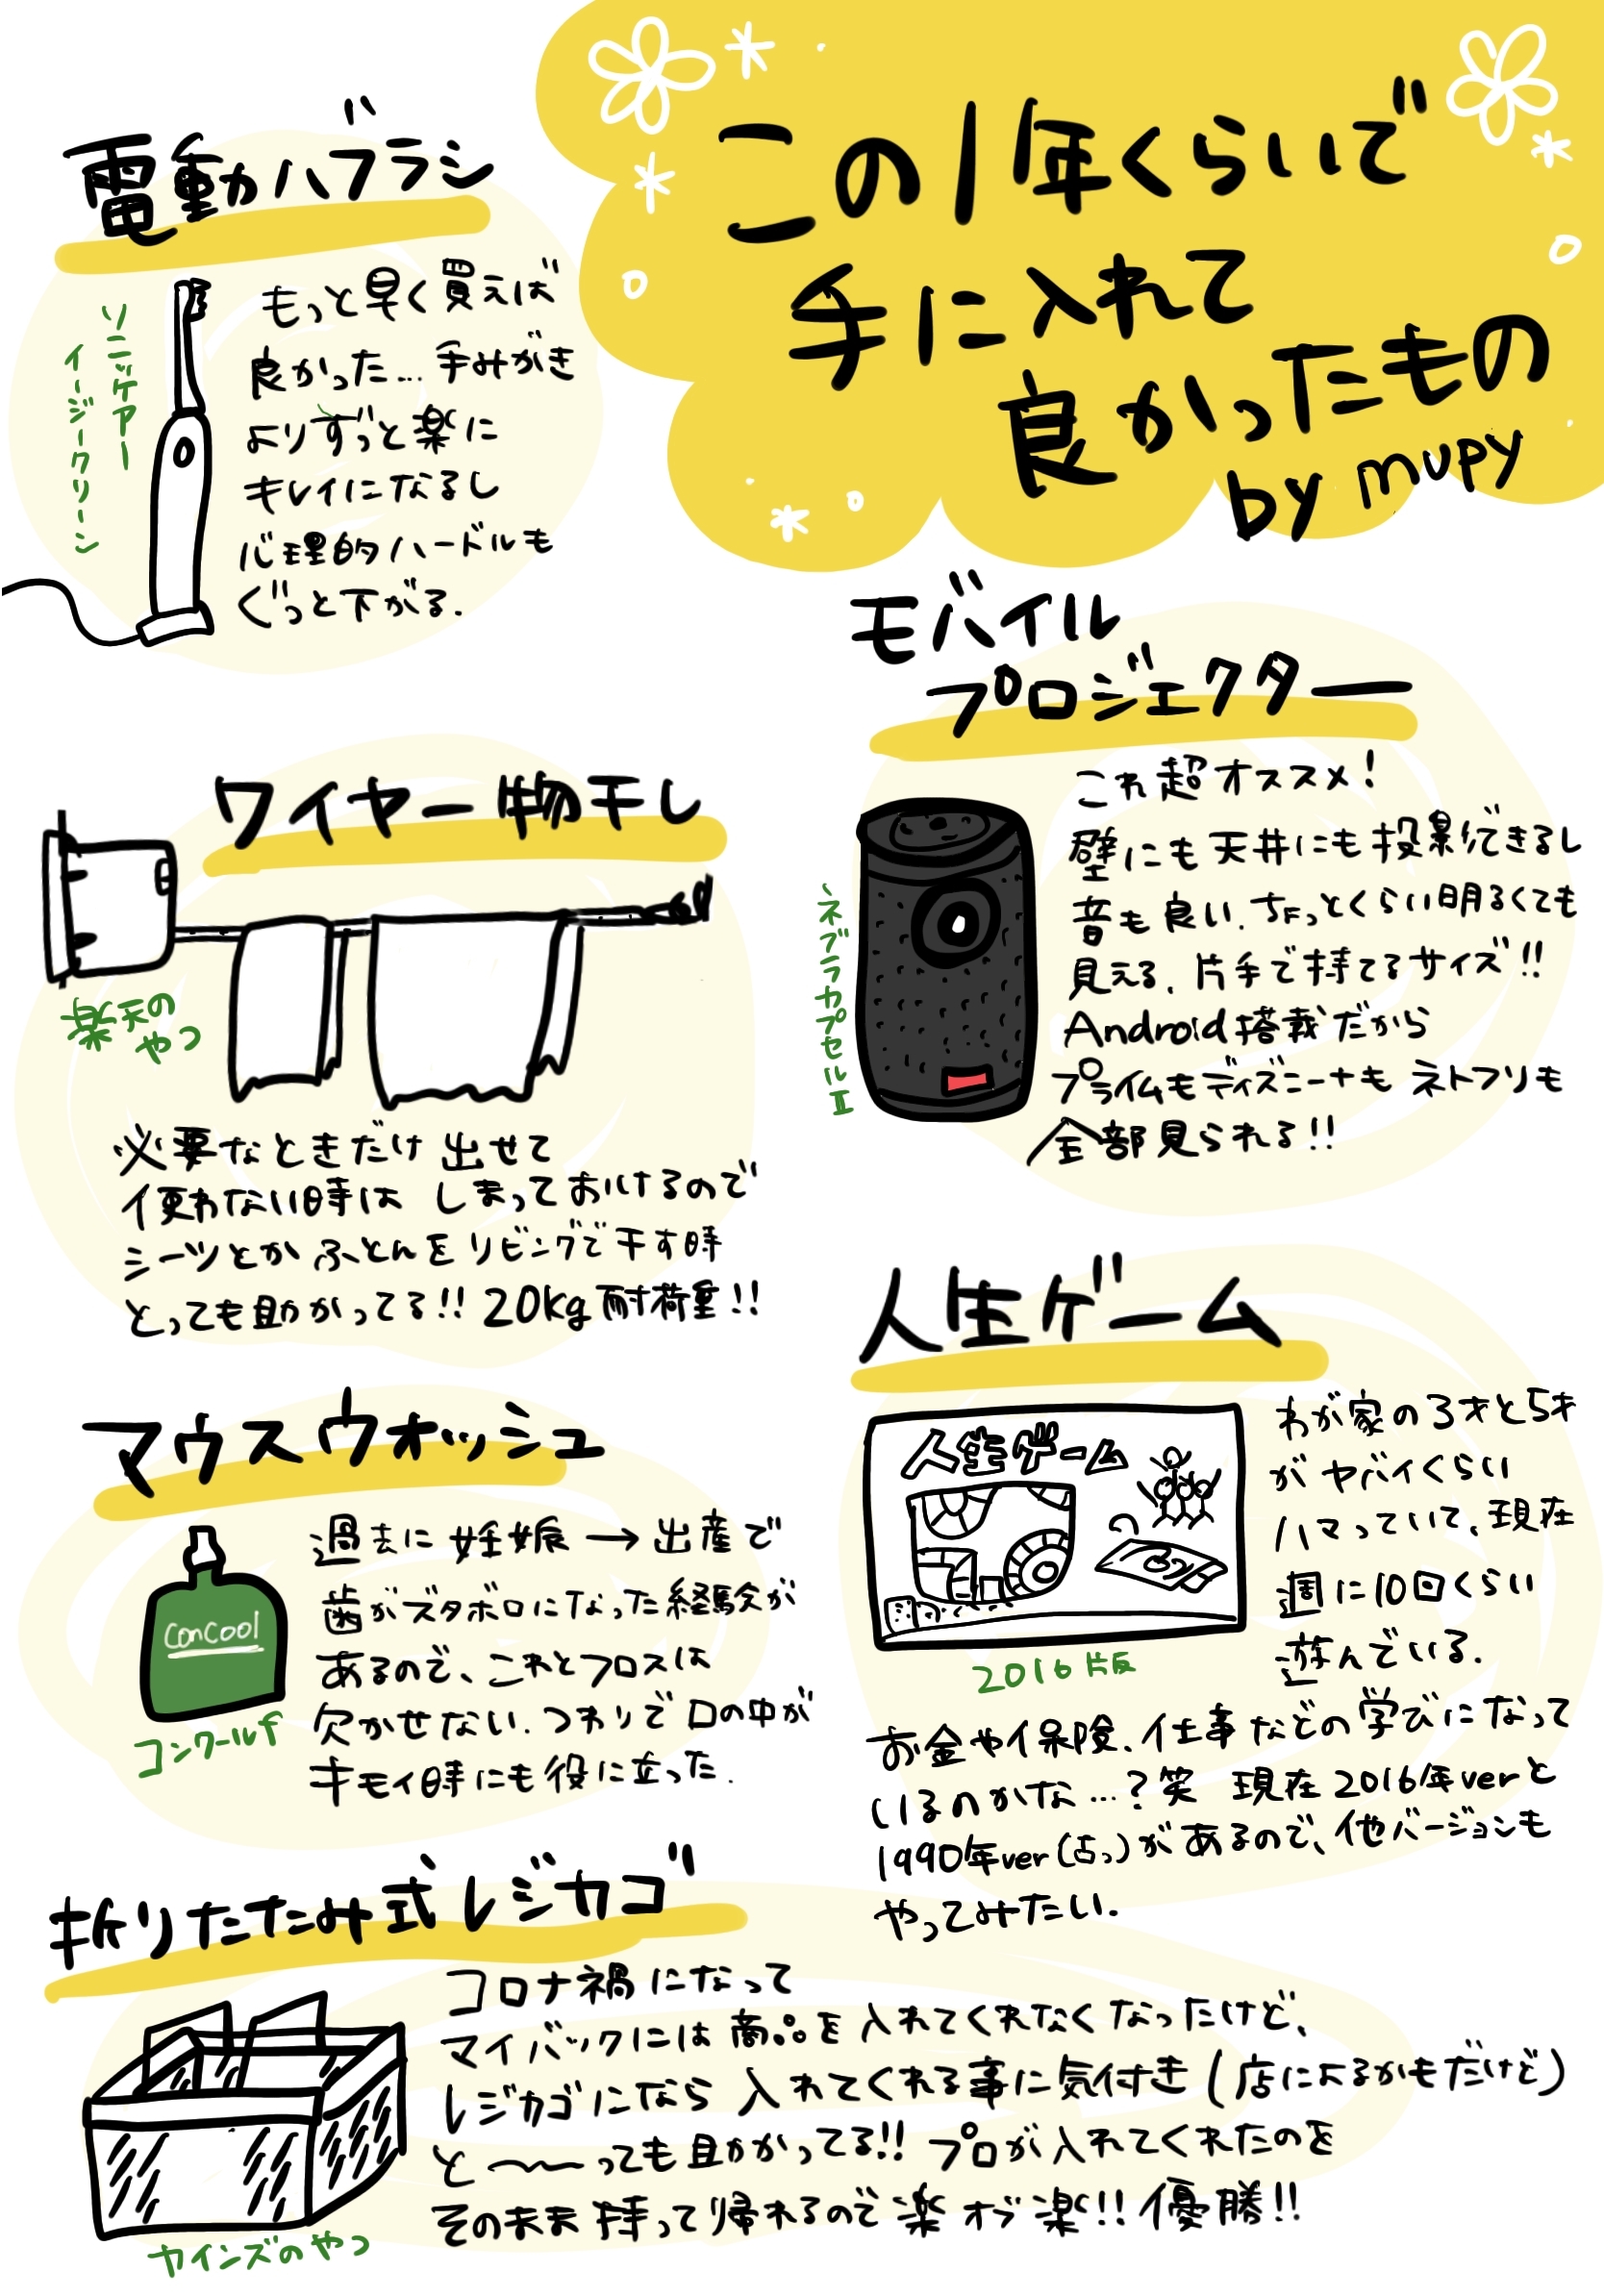 この1年くらいで
手に入れて
良かったもの
by mupy
電動ハブラシ
ソニケアー
イージークリーン
もっと早く買えば
良かった…手みがき
よりずっと楽に
キレイになるし
心理的ハードルも
ぐっと下がる.
モバイル
プロジェクター
ネブラカプセルⅡ
これ超オススメ!
壁にも天井にも投影できるし
音も良い.ちょっとくらい明るくても
見える.片手で持てるサイズ!!
Android搭載だから
プライムもディズニー+もネトフリも
全部見られる!!
ワイヤー物干し
楽天の
やつ
必要なときだけ出せて
使わない時はしまっておけるので
シーツとかふとんをリビングで干す時
とっても助かってる!!20kg耐荷重!!
人生ゲーム
人生ゲーム
2016版
わが家の3才と5才
がヤバイくらい
ハマっていて、現在
週に10回くらい
遊んでいる.
お金や保険、仕事などの学びになって
いるのかな…?笑 現在2016年verと
1990年ver(古っ)があるので、他バージョンも
やってみたい.
マウスウォッシュ
ConCool
コンクールf
過去に妊娠→出産で
歯がズタボロになった経験が
あるので、これとフロスは
欠かせない.つわりで口の中が
キモイ時にも役に立った.
折りたたみ式レジカゴ
カインズのやつ
コロナ禍になって
マイバックには商品を入れてくれなくなったけど、
レジカゴになら入れてくれる事に気付き(店によるかもだけど)
と〜〜っても助かってる!!プロが入れてくれたのを
そのまま持って帰れるので楽オブ楽!!優勝!!